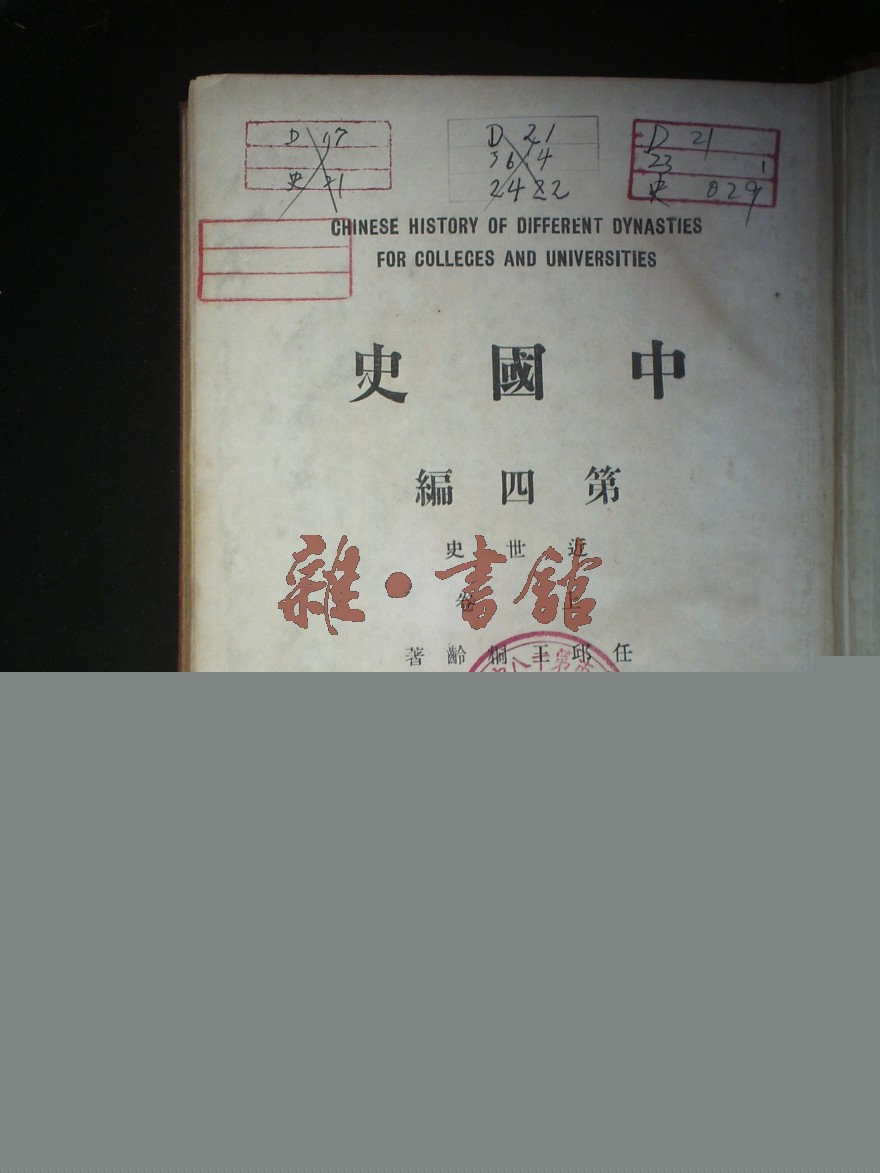 D 17
史 21
D 21
36.4
2422
D 21
23 1
史 029
CHINESE HISTORY OF DIFFERENT DYNASTIES
FOR COLLEGES AND UNIVERSITIES
中國史
第四編
近世史
上卷
雜·書館
任邱王桐齡著